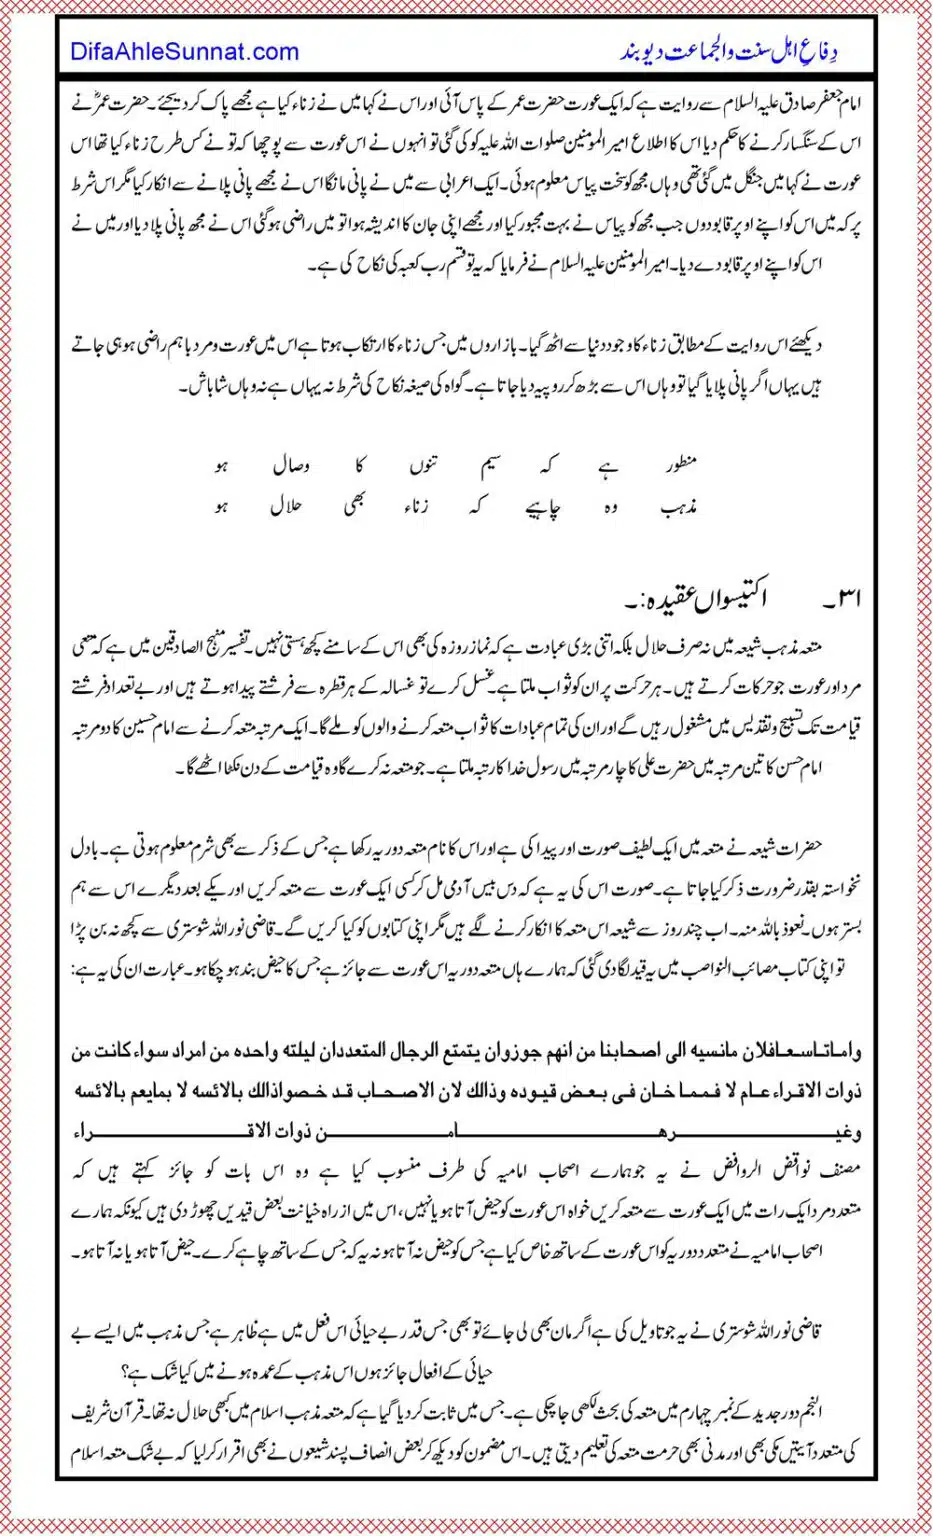 DifaAhleSunnat.com دِفاعِ اہل سنت والجماعت دیوبند
امام جعفر صادق علیہ السلام سے روایت ہے کہ ایک عورت حضرت عمر کے پاس آئی اور اس نے کہا میں نے زناء کیا ہے مجھے پاک کر دیجئے۔ حضرت عمرؓ نے
اس کے سنگسار کرنے کا حکم دیا اس کا اطلاع امیر المومنین صلوات اللہ علیہ کو کی گئی تو انہوں نے اس عورت سے پوچھا کہ تو نے کس طرح زناء کیا تھا اس
عورت نے کہا میں جنگل میں گئی تھی وہاں مجھ کو سخت پیاس معلوم ہوئی۔ ایک اعرابی سے میں نے پانی مانگا اس نے مجھے پانی پلانے سے انکار کیا مگر اس شرط
پر کہ میں اس کو اپنے اوپر قابو دوں جب مجھ کو پیاس نے بہت مجبور کیا اور مجھے اپنی جان کا اندیشہ ہوا تو میں راضی ہو گئی اس نے مجھ پانی پلا دیا اور میں نے
اس کو اپنے اوپر قابو دے دیا۔ امیر المومنین علیہ السلام نے فرمایا کہ یہ تو قسم رب کعبہ کی نکاح کی ہے۔
دیکھئے اس روایت کے مطابق زناء کا وجود دنیا سے اٹھ گیا۔ بازاروں میں جس زناء کا ارتکاب ہوتا ہے اس میں عورت و مرد باہم راضی ہو ہی جاتے
ہیں یہاں اگر پانی پلایا گیا تو وہاں اس سے بڑھ کر روپیہ دیا جاتا ہے۔ گواہ کی صیغہ نکاح کی شرط نہ یہاں ہے نہ وہاں شاباش۔
منظور ہے کہ سیم تنوں کا وصال ہو
مذہب وہ چاہیے کہ زناء بھی حلال ہو
۳۱۔ اکتیسواں عقیدہ:۔
متعہ مذہب شیعہ میں نہ صرف حلال بلکہ اتنی بڑی عبادت ہے کہ نماز روزہ کی بھی اس کے سامنے کچھ ہستی نہیں۔ تفسیر منہج الصادقین میں ہے کہ متعی
مرد اور عورت جو حرکات کرتے ہیں۔ ہر حرکت پر ان کو ثواب ملتا ہے۔ غسل کرے تو غسالہ کے ہر قطرہ سے فرشتے پیدا ہوتے ہیں اور بے تعداد فرشتے
قیامت تک تسبیح و تقدیس میں مشغول رہیں گے اور ان کی تمام عبادات کا ثواب متعہ کرنے والوں کو ملے گا۔ ایک مرتبہ متعہ کرنے سے امام حسین کا دو مرتبہ
امام حسن کا تین مرتبہ میں حضرت علی کا چار مرتبہ میں رسول خدا کا رتبہ ملتا ہے۔ جو متعہ نہ کرے گا وہ قیامت کے دن نکٹا اٹھے گا۔
حضرات شیعہ نے متعہ میں ایک لطیف صورت اور پیدا کی ہے اور اس کا نام متعہ دوریہ رکھا ہے جس کے ذکر سے بھی شرم معلوم ہوتی ہے۔ بادل
نخواستہ بقدر ضرورت ذکر کیا جاتا ہے۔ صورت اس کی یہ ہے کہ دس بیس آدمی مل کر کسی ایک عورت سے متعہ کریں اور یکے بعد دیگرے اس سے ہم
بستر ہوں۔ نعوذ باللہ منہ۔ اب چند روز سے شیعہ اس متعہ کا انکار کرنے لگے ہیں مگر اپنی کتابوں کو کیا کریں گے۔ قاضی نور اللہ شوستری سے کچھ نہ بن پڑا
تو اپنی کتاب مصائب النواصب میں یہ قید لگا دی گئی کہ ہمارے ہاں متعہ دوریہ اس عورت سے جائز ہے جس کا حیض بند ہو چکا ہو۔ عبارت ان کی یہ ہے:
واماتاسعافلان مانسبه الى اصحابنا من انهم جوزوان يتمتع الرجال المتعددان ليلته واحده من امراد سواء كانت من
ذوات الاقراء عام لا فمما خان فى بعض قيوده وذالك لان الاصحاب قد خصواذالك بالائسه لا بمايعم بالائسه
وغيرها من ذوات الاقراء
مصنف نواقض الروافض نے یہ جو ہمارے اصحاب امامیہ کی طرف منسوب کیا ہے وہ اس بات کو جائز کہتے ہیں کہ
متعدد مرد ایک رات میں ایک عورت سے متعہ کریں خواہ اس عورت کو حیض آتا ہو یا نہیں، اس میں از راہ خیانت بعض قیدیں چھوڑ دی ہیں کیونکہ ہمارے
اصحاب امامیہ نے متعدد دوریہ کو اس عورت کے ساتھ خاص کیا ہے جس کو حیض نہ آتا ہو نہ یہ کہ جس کے ساتھ چاہے کرے۔ حیض آتا ہو یا نہ آتا ہو۔
قاضی نور اللہ شوستری نے یہ جو تاویل کی ہے اگر مان بھی لی جائے تو بھی جس قدر بے حیائی اس فعل میں ہے ظاہر ہے جس مذہب میں ایسے بے
حیائی کے افعال جائز ہوں اس مذہب کے عمدہ ہونے میں کیا شک ہے؟
النجم دور جدید کے نمبر چہارم میں متعہ کی بحث لکھی جا چکی ہے۔ جس میں ثابت کر دیا گیا ہے کہ متعہ مذہب اسلام میں کبھی حلال نہ تھا۔ قرآن شریف
کی متعدد آیتیں مکی بھی اور مدنی بھی حرمت متعہ کی تعلیم دیتی ہیں۔ اس مضمون کو دیکھ کر بعض انصاف پسند شیعوں نے بھی اقرار کر لیا کہ بے شک متعہ اسلام